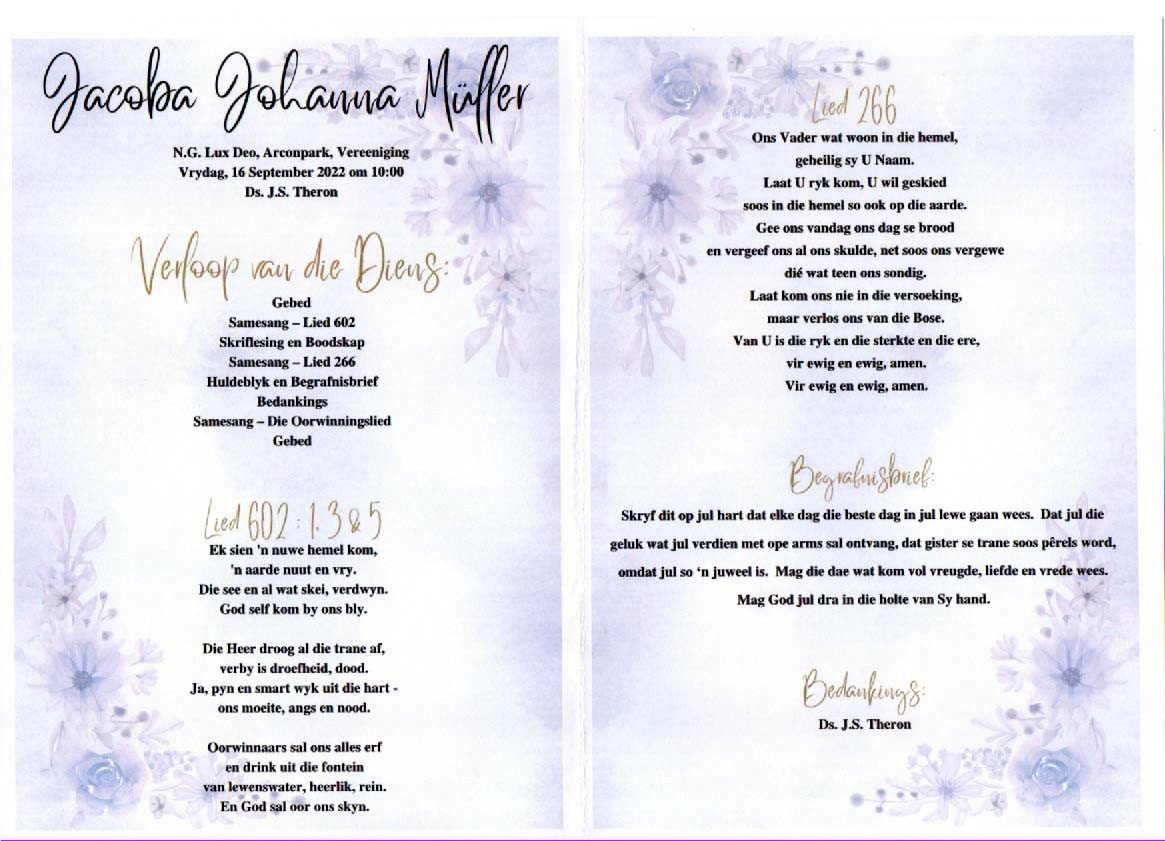 Jacoba Johanna Müller
N.G. Lux Deo, Arconpark, Vereeniging
Vrydag, 16 September 2022 om 10:00
Ds. J.S. Theron
Verloop van die Diens:
Gebed
Samesang – Lied 602
Skriflesing en Boodskap
Samesang – Lied 266
Huldeblyk en Begrafnisbrief
Bedankings
Samesang – Die Oorwinningslied
Gebed
Lied 602 : 1, 3 & 5
Ek sien 'n nuwe hemel kom,
'n aarde nuut en vry.
Die see en al wat skei, verdwyn.
God self kom by ons bly.
Die Heer droog al die trane af,
verby is droefheid, dood.
Ja, pyn en smart wyk uit die hart -
ons moeite, angs en nood.
Oorwinnaars sal ons alles erf
en drink uit die fontein
van lewenswater, heerlik, rein.
En God sal oor ons skyn.
Lied 266
Ons Vader wat woon in die hemel,
geheilig sy U Naam.
Laat U ryk kom, U wil geskied
soos in die hemel so ook op die aarde.
Gee ons vandag ons dag se brood
en vergeef ons al ons skulde, net soos ons vergewe
dié wat teen ons sondig.
Laat kom ons nie in die versoeking,
maar verlos ons van die Bose.
Van U is die ryk en die sterkte en die ere,
vir ewig en ewig, amen.
Vir ewig en ewig, amen.
Begrafnisbrief:
Skryf dit op jul hart dat elke dag die beste dag in jul lewe gaan wees.  Dat jul die
geluk wat jul verdien met ope arms sal ontvang, dat gister se trane soos pêrels word,
omdat jul so ‘n juweel is.  Mag die dae wat kom vol vreugde, liefde en vrede wees.
Mag God jul dra in die holte van Sy hand.
Bedankings:
Ds. J.S. Theron